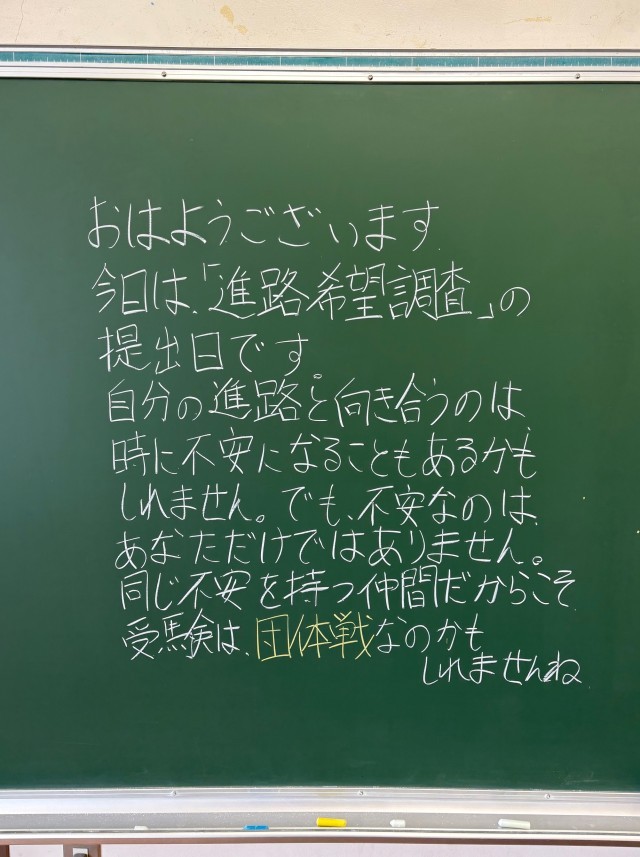 おはようございます.
今日は、「進路希望調査」の
提出日です。
自分の進路と向き合うのは、
時に不安になることもあるかも
しれません。でも、不安なのは、
あなただけではありません。
同じ不安を持つ仲間だからこそ、
受験は、団体戦なのかも
しれませんね